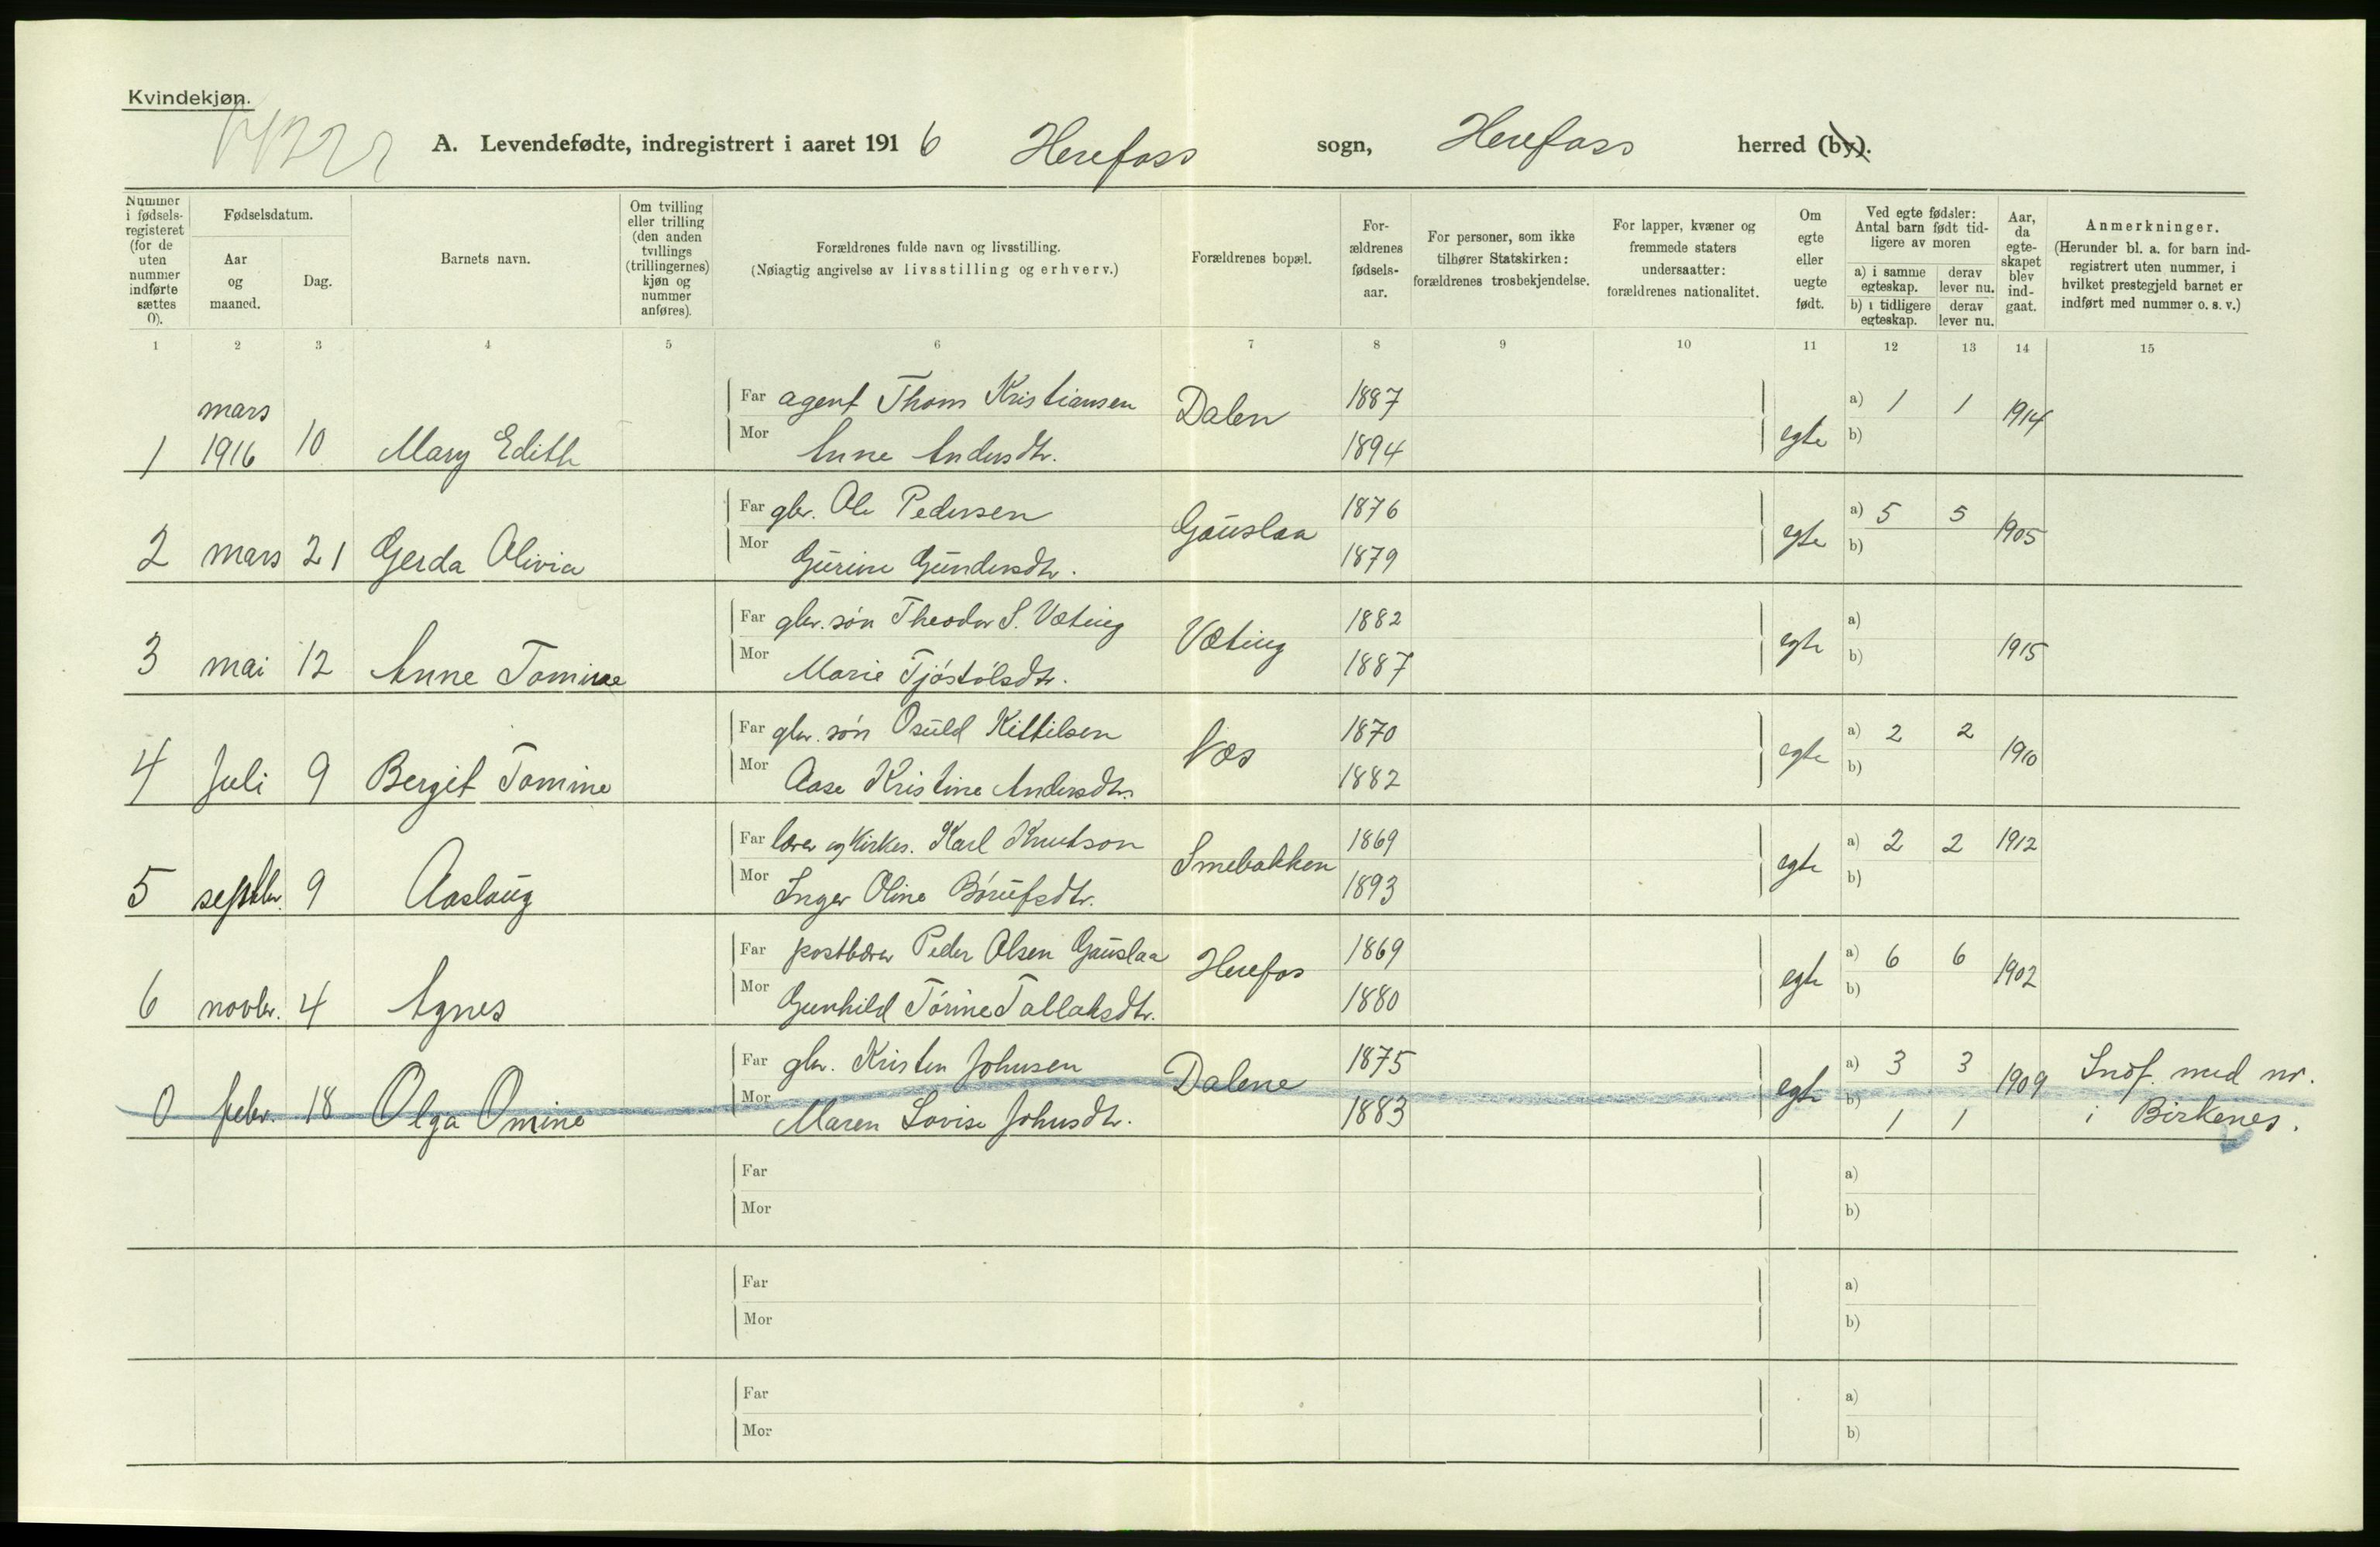 Kvindekjøn.
A. Levendefødte, indregistrert i aaret 1916 Herefoss sogn, Herefoss herred (by).
Nummer i fødsels-registeret (for de uten nummer indførte sættes 0).
Fødselsdatum.
Aar og maaned.
Dag.
Barnets navn.
Om tvilling eller trilling (den anden tvillings (trillingernes) kjøn og nummer anføres).
Forældrenes fulde navn og livsstilling.
(Nøiagtig angivelse av livsstilling og erhverv.)
Forældrenes bopæl.
For-ældrenes fødsels-aar.
For personer, som ikke tilhører Statskirken: forældrenes trosbekjendelse.
For lapper, kvæner og fremmede staters undersaatter: forældrenes nationalitet.
Om egte eller uegte født.
Ved egte fødsler: Antal barn født tid-ligere av moren
a) i samme egteskap.
derav lever nu.
b) i tidligere egteskap.
derav lever nu.
Aar, da egte-skapet blev ind-gaat.
Anmerkninger.
(Herunder bl. a. for barn ind-registrert uten nummer, i hvilket prestegjeld barnet er indført med nummer o. s. v.)
1 2 3 4 5 6 7 8 9 10 11 12 13 14 15
1 mars 1916 10 Mary Edith Far agent Thom Kristiansen Dalen 1887 egte a) 1 1 1914
Mor Anne Andersdtr. 1894 b)
2 mars 21 Gerda Olivia Far gbr. Ole Pedersen Gauslaa 1876 egte a) 5 5 1905
Mor Gurine Gundersdtr. 1879 b)
3 mai 12 Anne Tomine Far gbr. søn Theodor S. Væting Væting 1882 egte a) 1915
Mor Marie Tjøstølsdtr. 1887 b)
4 Juli 9 Bergit Tomine Far gbr. søn Osuld Kittilsen Næs 1870 egte a) 2 2 1910
Mor Aase Kristine Andersdtr. 1882 b)
5 septbr. 9 Aaslaug Far lærer og Kirkes. Karl Knutson Smebakken 1869 egte a) 2 2 1912
Mor Inger Oline Børufsdtr. 1893 b)
6 novbr. 4 Agnes Far postbærer Peder Olsen Gauslaa Herefos 1869 egte a) 6 6 1902
Mor Gunhild Tørine Tallaksdtr. 1880 b)
0 febr. 18 Olga Omine Far gbr. Kristen Johnsen Dalene 1875 egte a) 3 3 1909 Indf. med nr.
Mor Maren Lovise Johnsdtr. 1883 b) 1 1 i Birkenes.
Far a)
Mor b)
Far a)
Mor b)
Far a)
Mor b)